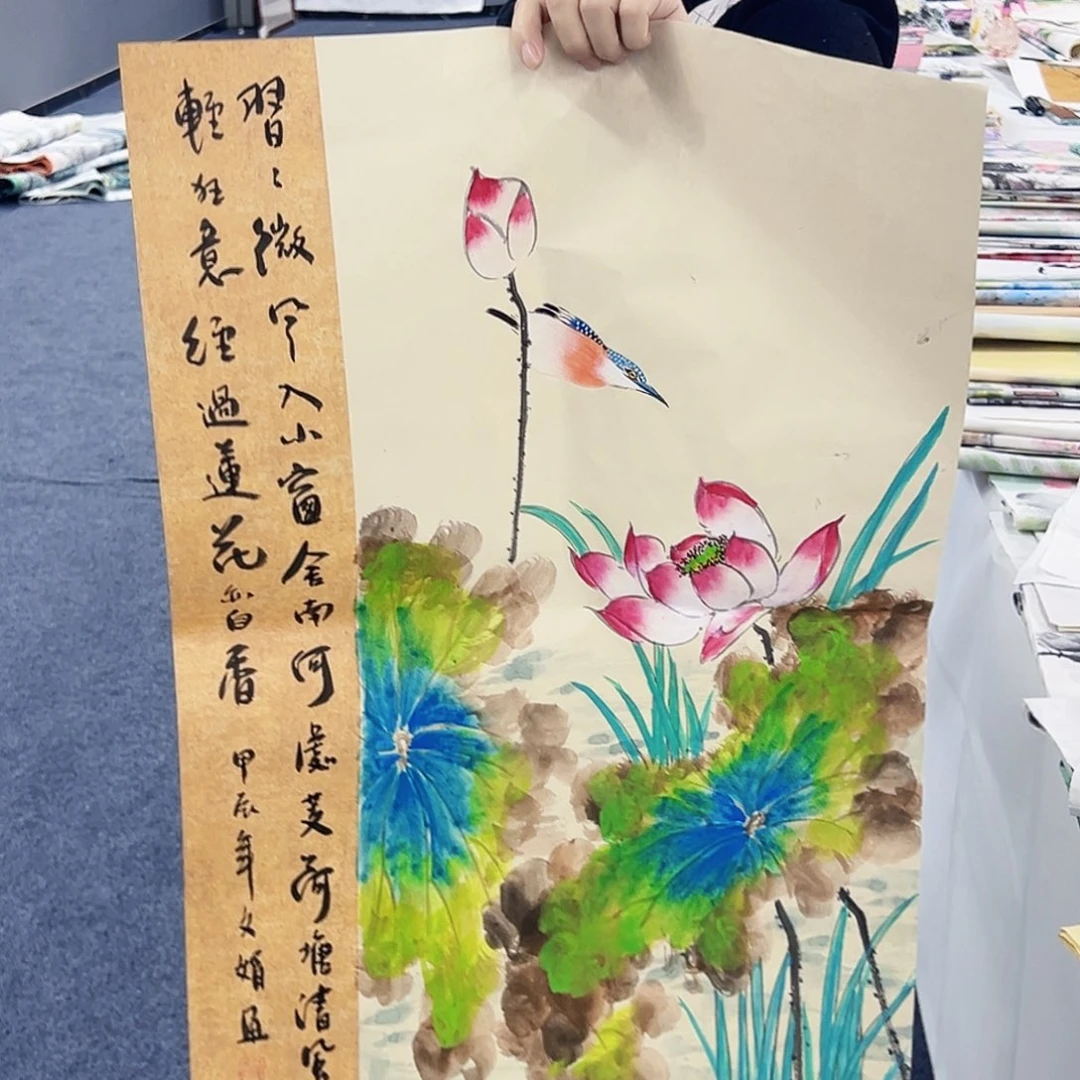 習〻微風入小窗舍南何處芰荷塘清風
輕狂意經過蓮花亦自香
甲辰年文娟